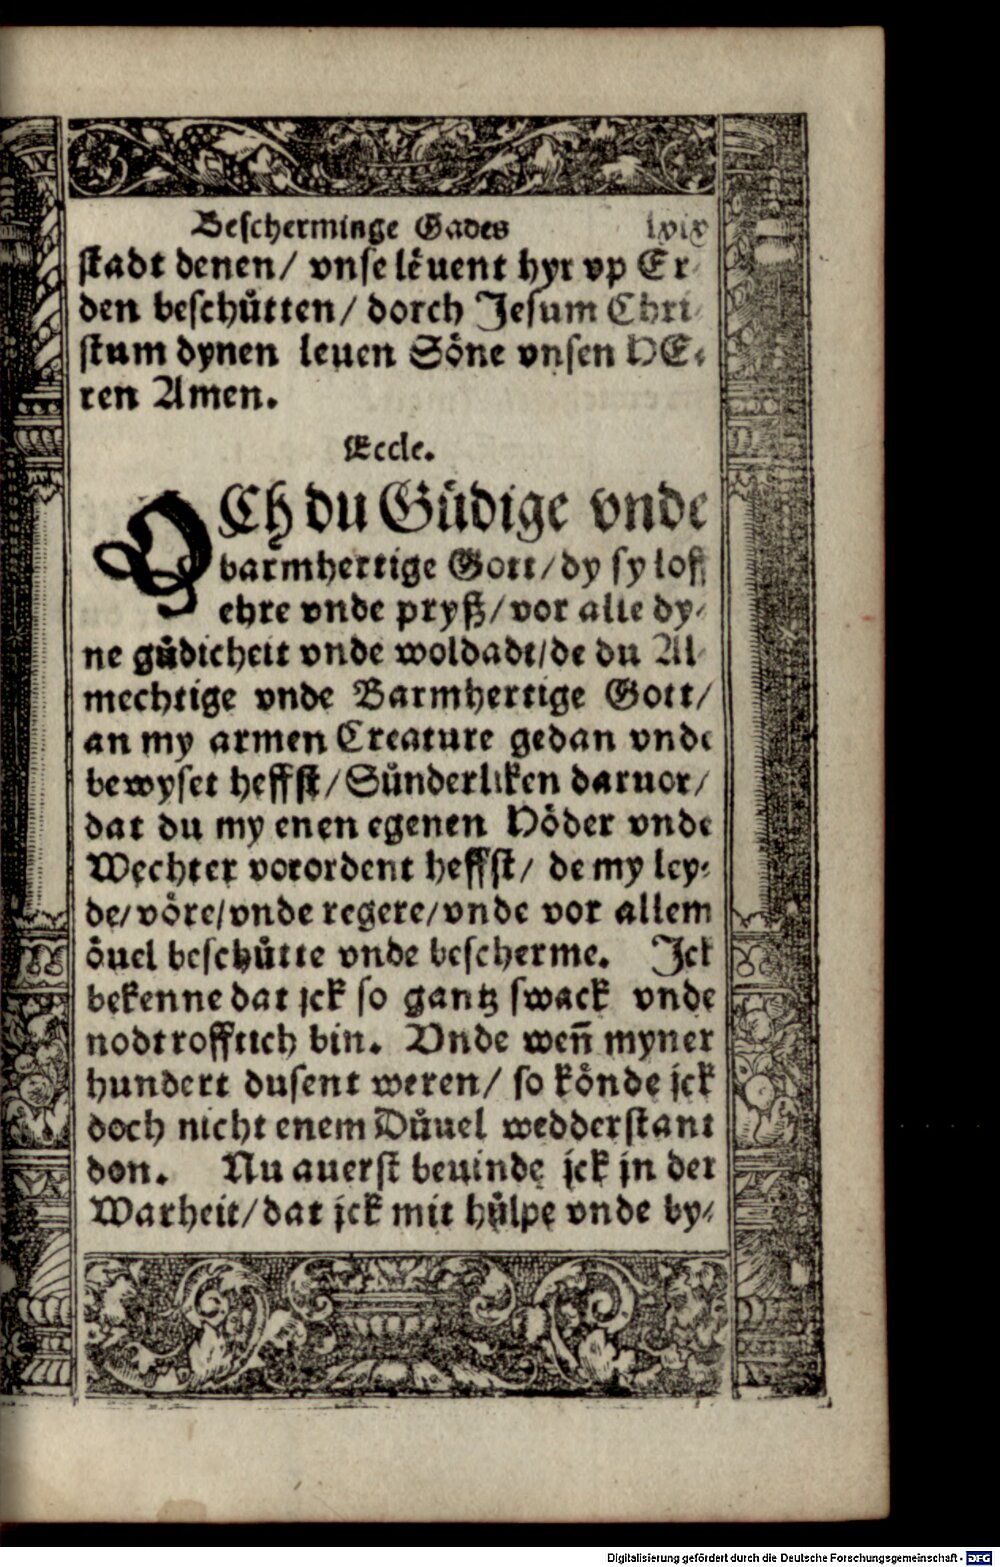 Bescherminge Gades lxix
stadt denen/ vnse lëuent hyr vp Er-
den beschütten/ dorch Jesum Chri-
stum dynen leuen Söne vnsen HE-
ren Amen.
Eccle.
OCh du Güdige vnde
barmhertige Gott/dy sy loff
ehre vnde pryß/vor alle dy-
ne güdicheit vnde woldadt/de du Al-
mechtige vnde Barmhertige Gott/
an my armen Creature gedan vnde
bewyset heffst/Sünderliken daruor/
dat du my enen egenen Höder vnde
Wechter vorordent heffst/ de my ley-
de/vöre/vnde regere/vnde vor allem
öuel beschütte vnde bescherme. Jck
bekenne dat jck so gantz swack vnde
nodtrofftich bin. Vnde weñ myner
hundert dusent weren/ so könde jck
doch nicht enem Düuel wedderstant
don. Nu auerst beuinde jck jn der
Warheit/dat jck mit hülpe vnde by-
Digitalisierung gefördert durch die Deutsche Forschungsgemeinschaft - DFG